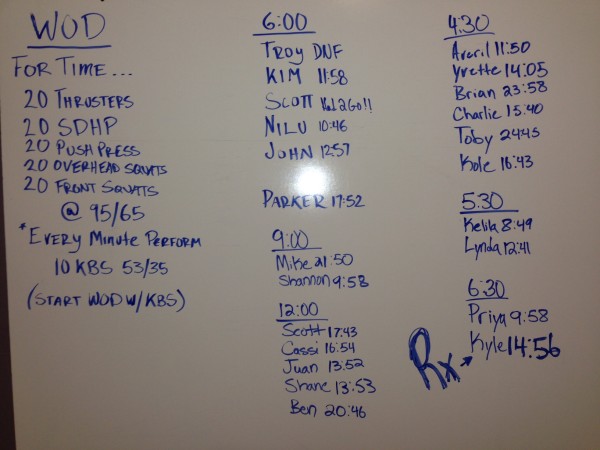 WOD
FOR TIME...
20 THRUSTERS
20 SDHP
20 PUSH PRESS
20 OVERHEAD SQUATS
20 FRONT SQUATS
@ 95/65
*EVERY MINUTE PERFORM
10 KBS 53/35
(START WOD W/KBS)
6:00
TROY DNF
KIM 11:58
SCOTT 2Go!!
NILU 10:46
JOHN 12:57
PARKER 17:52
9:00
Mike 21:50
Shannon 9:58
12:00
Scott 17:43
Cassi 16:54
Juan 13:52
Shane 13:53
Ben 20:46
4:30
Averil 11:50
Yvette 14:05
Brian 23:58
Charlie 15:40
Toby 24:45
Kole 16:43
5:30
Kelila 8:49
Lynda 12:41
6:30
Priya 9:58
Rx → Kyle 14:56